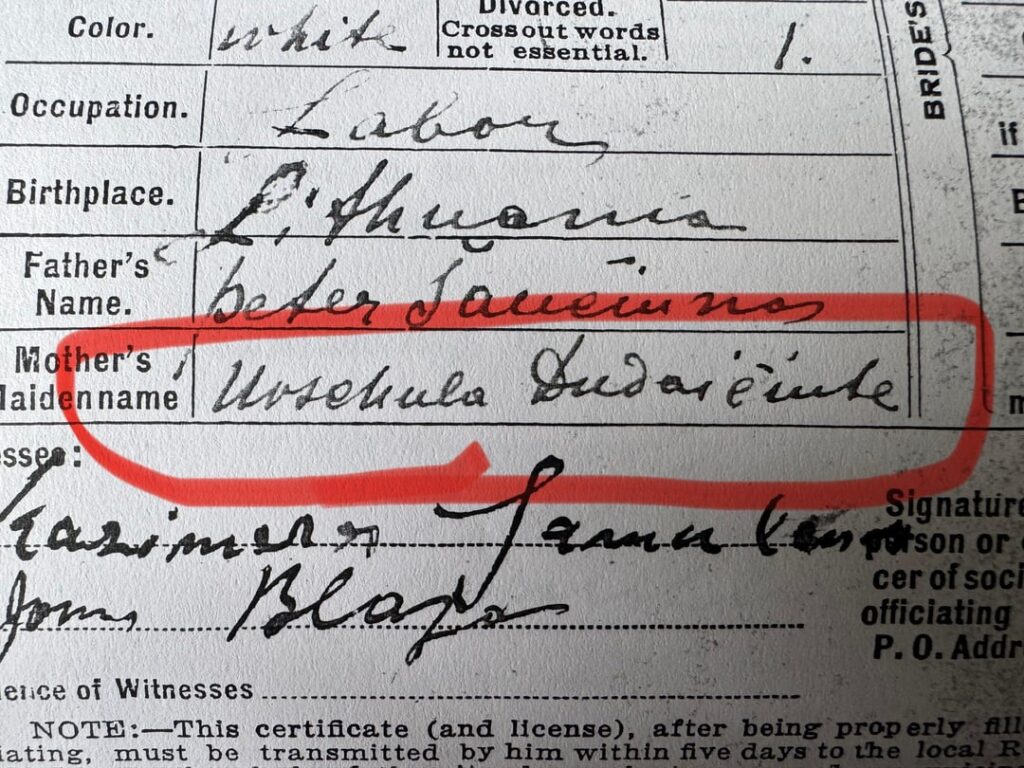 Divorced.
Color. white Cross out words
not essential. 1.
BRIDE'S
Occupation. Labor
if
Birthplace. Lithuania
Father's
Name. peter
Mother's
Maiden name Urschula Dudaičiute
esses:
Kazimer
Signature
person or
cer of soci
Jonas Blazis
officiating
P. O. Addr
ence of Witnesses
NOTE:—This certificate (and license), after being properly fill
iating, must be transmitted by him within five days to the local R